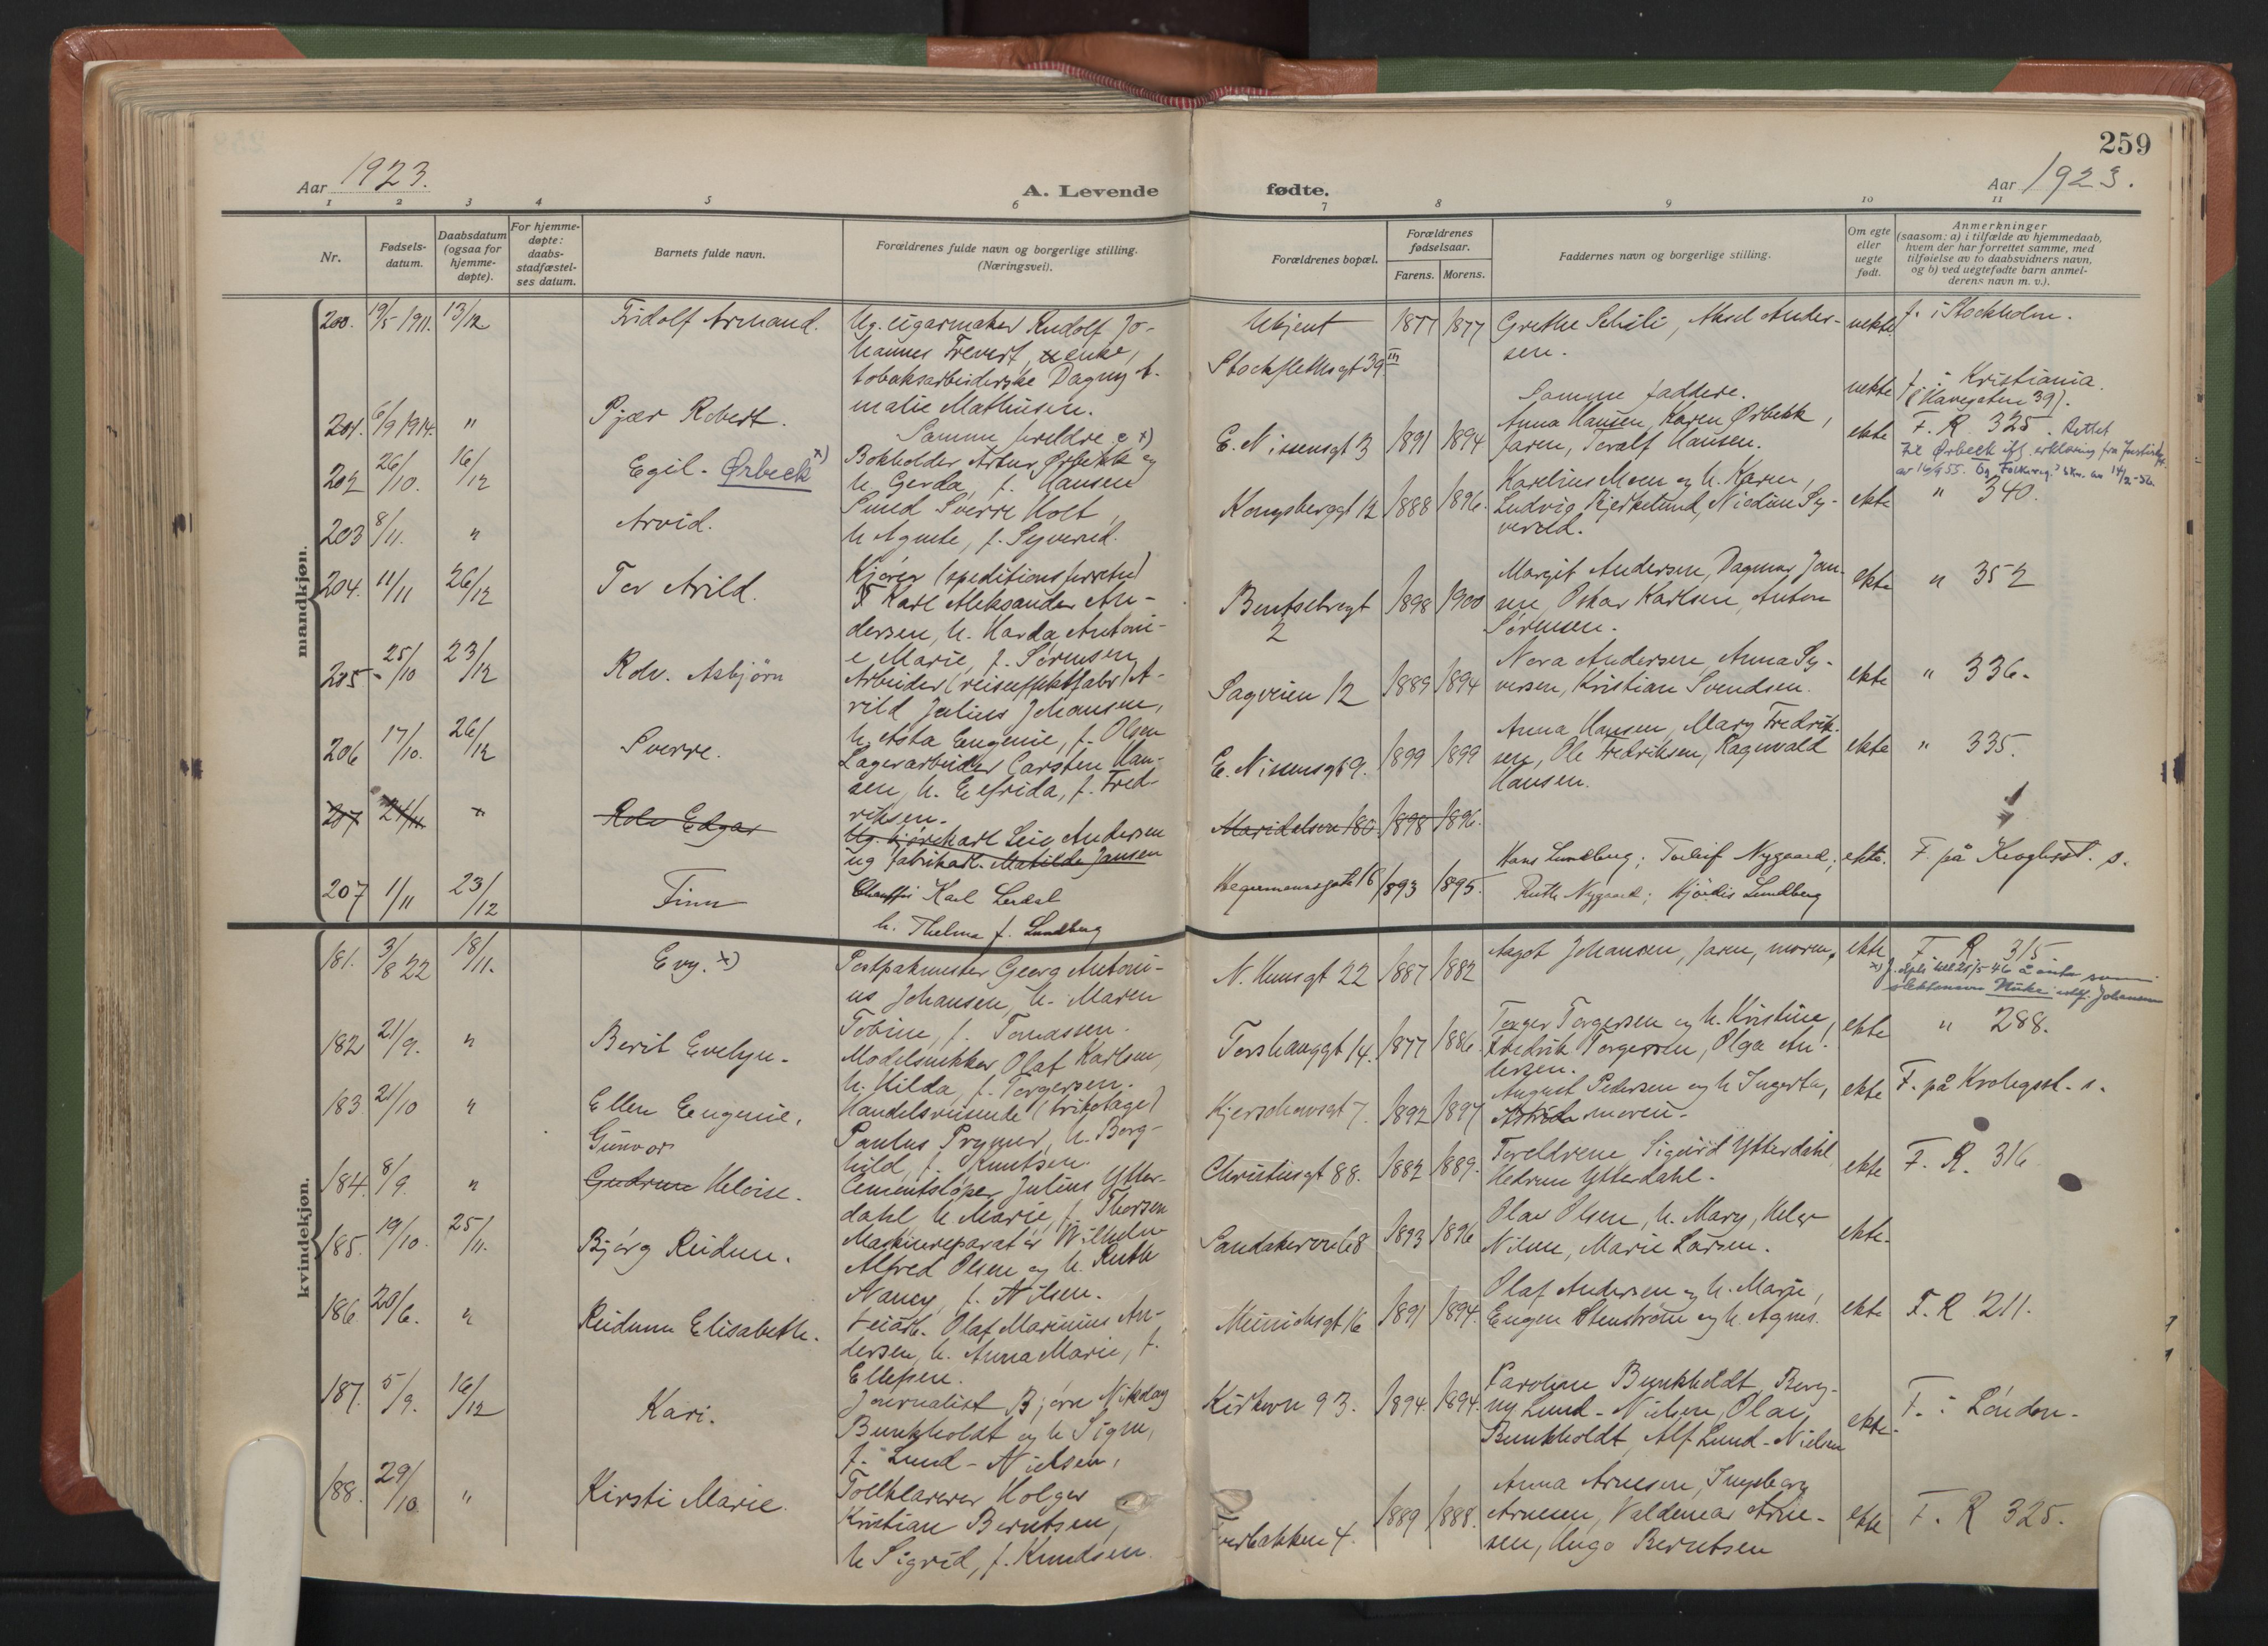 259
Aar 1923.
A. Levende
fødte.
Aar 1923.
1 2 3 4 5 6 7 8 9 10 11
Nr.
Fødsels-
datum.
Daabsdatum
(ogsaa for
hjemme-
døpte).
For hjemme-
døpte:
daabs-
stadfæstel-
ses datum.
Barnets fulde navn.
Forældrenes fulde navn og borgerlige stilling.
(Næringsvei).
Forældrenes bopæl.
Forældrenes
fødselsaar.
Farens. Morens.
Faddernes navn og borgerlige stilling.
Om egte
eller
uegte
født.
Anmerkninger
(saasom: a) i tilfælde av hjemmedaab,
hvem der har forrettet samme, med
tilføielse av to daabsvidners navn,
og b) ved uegtefødte barn anmel-
derens navn m. v.).
mandkjøn.
200. 19/5 1911. 13/12
Fridolf Armand.
Ug. cigarmaker Rudolf Jo-
hannes Trevert, enke,
tobaksarbeiderske Dagny A-
malie Mathisen.
Ukjent
Stockflethsgt 39 III
1877 1877
Grethe Schili, Aksel Ander-
sen.
uekte
f. i Stockholm.
201. 6/9 1914. "
Pjær Robert.
Samme foreldre
Samme faddere.
uekte
f. i Kristiania.
(Havegaten 39).
202 26/10. 16/12
Egil. Ørbeck x)
Bokholder Artur Ørbekk og
h. Gerda, f. Hansen
E. Nissensgt 3
1891 1894
Anna Hansen, Karen Ørbekk,
faren, Toralf Hansen.
ekte
F. R. 325. Rettet
til Ørbeck ifg. erklæring fra Justisdpt.
av 16/9 55. Og Folkereg. skr. av 14/2-56.
203 8/11. "
Arvid.
Smed Sverre Holt,
h Agnete, f. Syverud.
Kongsberggt 12
1888 1896.
Karelius Moen og h. Karen,
Ludvig Bjerkelund, Nicoline Sy-
verud.
ekte
" 340.
204. 11/11 26/12
Tor Arild.
Kjører (speditionsforretn)
Karl Aleksander An-
dersen, h. Harda Antoni-
e Marie, f. Sørensen
Bentsebrogt
2
1898 1900
Margit Andersen, Dagmar Jan-
sen, Oskar Karlsen, Anton
Sørensen.
ekte
" 352
205 25/10 23/12
Rolv. Asbjørn
Arbeider (reiseeffektfabr) A-
rild Julius Johansen,
h. Asta Eugenie, f. Olsen
Sagveien 12
1889 1894
Nora Andersen, Anna Sy-
versen, Kristian Svendsen.
ekte
" 336.
206 17/10. 26/12
Sverre.
Lagerarbeider Carsten Han-
sen, h. Elfrida, f. Fred-
riksen.
E. Nissensgt 9.
1899 1899
Anna Hansen, Mary Fredrik-
sen, Ole Fredriksen, Ragnvald
Hansen.
ekte
" 335.
207 21/11 "
Rolv Edgar
Ug. kjørekarl Leif Andersen
ug fabrikarb. Matilde Jansen
Maridalsvn 180
1898 1896.
207 1/11 23/12
Finn
Chauffør Karl Lerdal
h. Thelma f. Lundberg
Hegermannsgate 16
1893 1895.
Hans Lundberg; Torleif Nygaard;
Ruth Nygaard; Hjördis Lundberg
ekte.
F. på Kroghsst. s.
kvindekjøn.
181. 3/8 22 18/11.
Evy. x)
Postpakmester Georg Antoni-
us Johansen, h. Maren
Tobine, f. Tomassen.
N. Huusgt 22
1887 1882
Aagot Johansen, faren, moren.
ekte
F. R 315
x) J. dpts till 21/5-46 å anta som
slektsnavn Huke istf. Johansen
182 21/9. "
Berit Evelyn.
Modelsnekker Olaf Karlsen,
h. Hilda, f. Torgersen.
Torshauggt 14.
1877 1886.
Torger Torgersen og h. Kristine,
Fredrik Torgersen, Olga An-
dersen.
ekte
" 288.
183. 21/10 "
Ellen Eugenie.
Handelsreisende (trikotage)
Paulus Prymer, h. Borg-
hild, f. Knutsen.
Kjerschowsgt 7.
1892 1897
August Pedersen og h Ingerta,
Astrid moren.
ekte
F. på Krohgsst. s.
184. 8/9. "
Gunvor
Gudrun Heloise.
Cementstøper Julius Ytter-
dahl, h. Marie, f. Thorsen
Christiesgt 88.
1882 1889.
Foreldrene, Sigurd Ytterdahl,
Hedrum Ytterdahl.
ekte
F. R. 316
185. 19/10. 25/11.
Bjørg Reidun.
Maskinreparatør Wilhelm
Alfred Olsen og h. Ruth
Nancy, f. Nilsen.
Sandakervn 68
1893 1896
Olav Olsen, h. Mary, Helge
Nilsen, Marie Larsen.
ekte.
186. 20/6. "
Reidunn Elisabeth.
Olaf Marinius An-
dersen, h. Anna Marie, f.
Ellefsen.
Münichsgt 16
1891 1894.
Olaf Andersen og h. Marie,
Eugen Stenstrøm og h. Agnes.
ekte
F. R 211.
187. 5/9. 16/12
Kari.
Journalist Bjørn Nikolay
Bunkholdt og h Signe,
f. Lund-Nielsen,
Kirkevn 93.
1894. 1894.
Karoline Bunkholdt, Borg-
ny Lund-Nielsen, Olav
Bunkholdt, Alf Lund-Nielsen
ekte.
F. i London.
188. 29/10 "
Kirsti Marie.
Tollklarerer Holger
Kristian Berntsen,
h Sigrid, f. Knudsen.
4.
1889 1888.
Anna Arnesen, Ingeborg
Arnesen, Valdemar Arne-
sen, Hugo Berntsen
ekte
F. R 325.